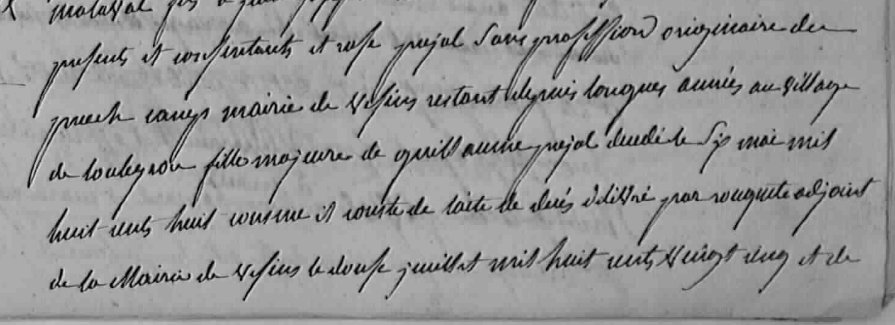 malaval
presents et consentants et rose pujol sans profession originaire du
puech mairie de Vesins restant depuis longues années au village
de fille majeure de guillaume pujol décédé le six mai mil
huit cents huit comme il conste de l'acte de décés délivré par rouquete adjoint
de la Mairie de Vesins le douse juillet mil huit cents vingt cinq et de